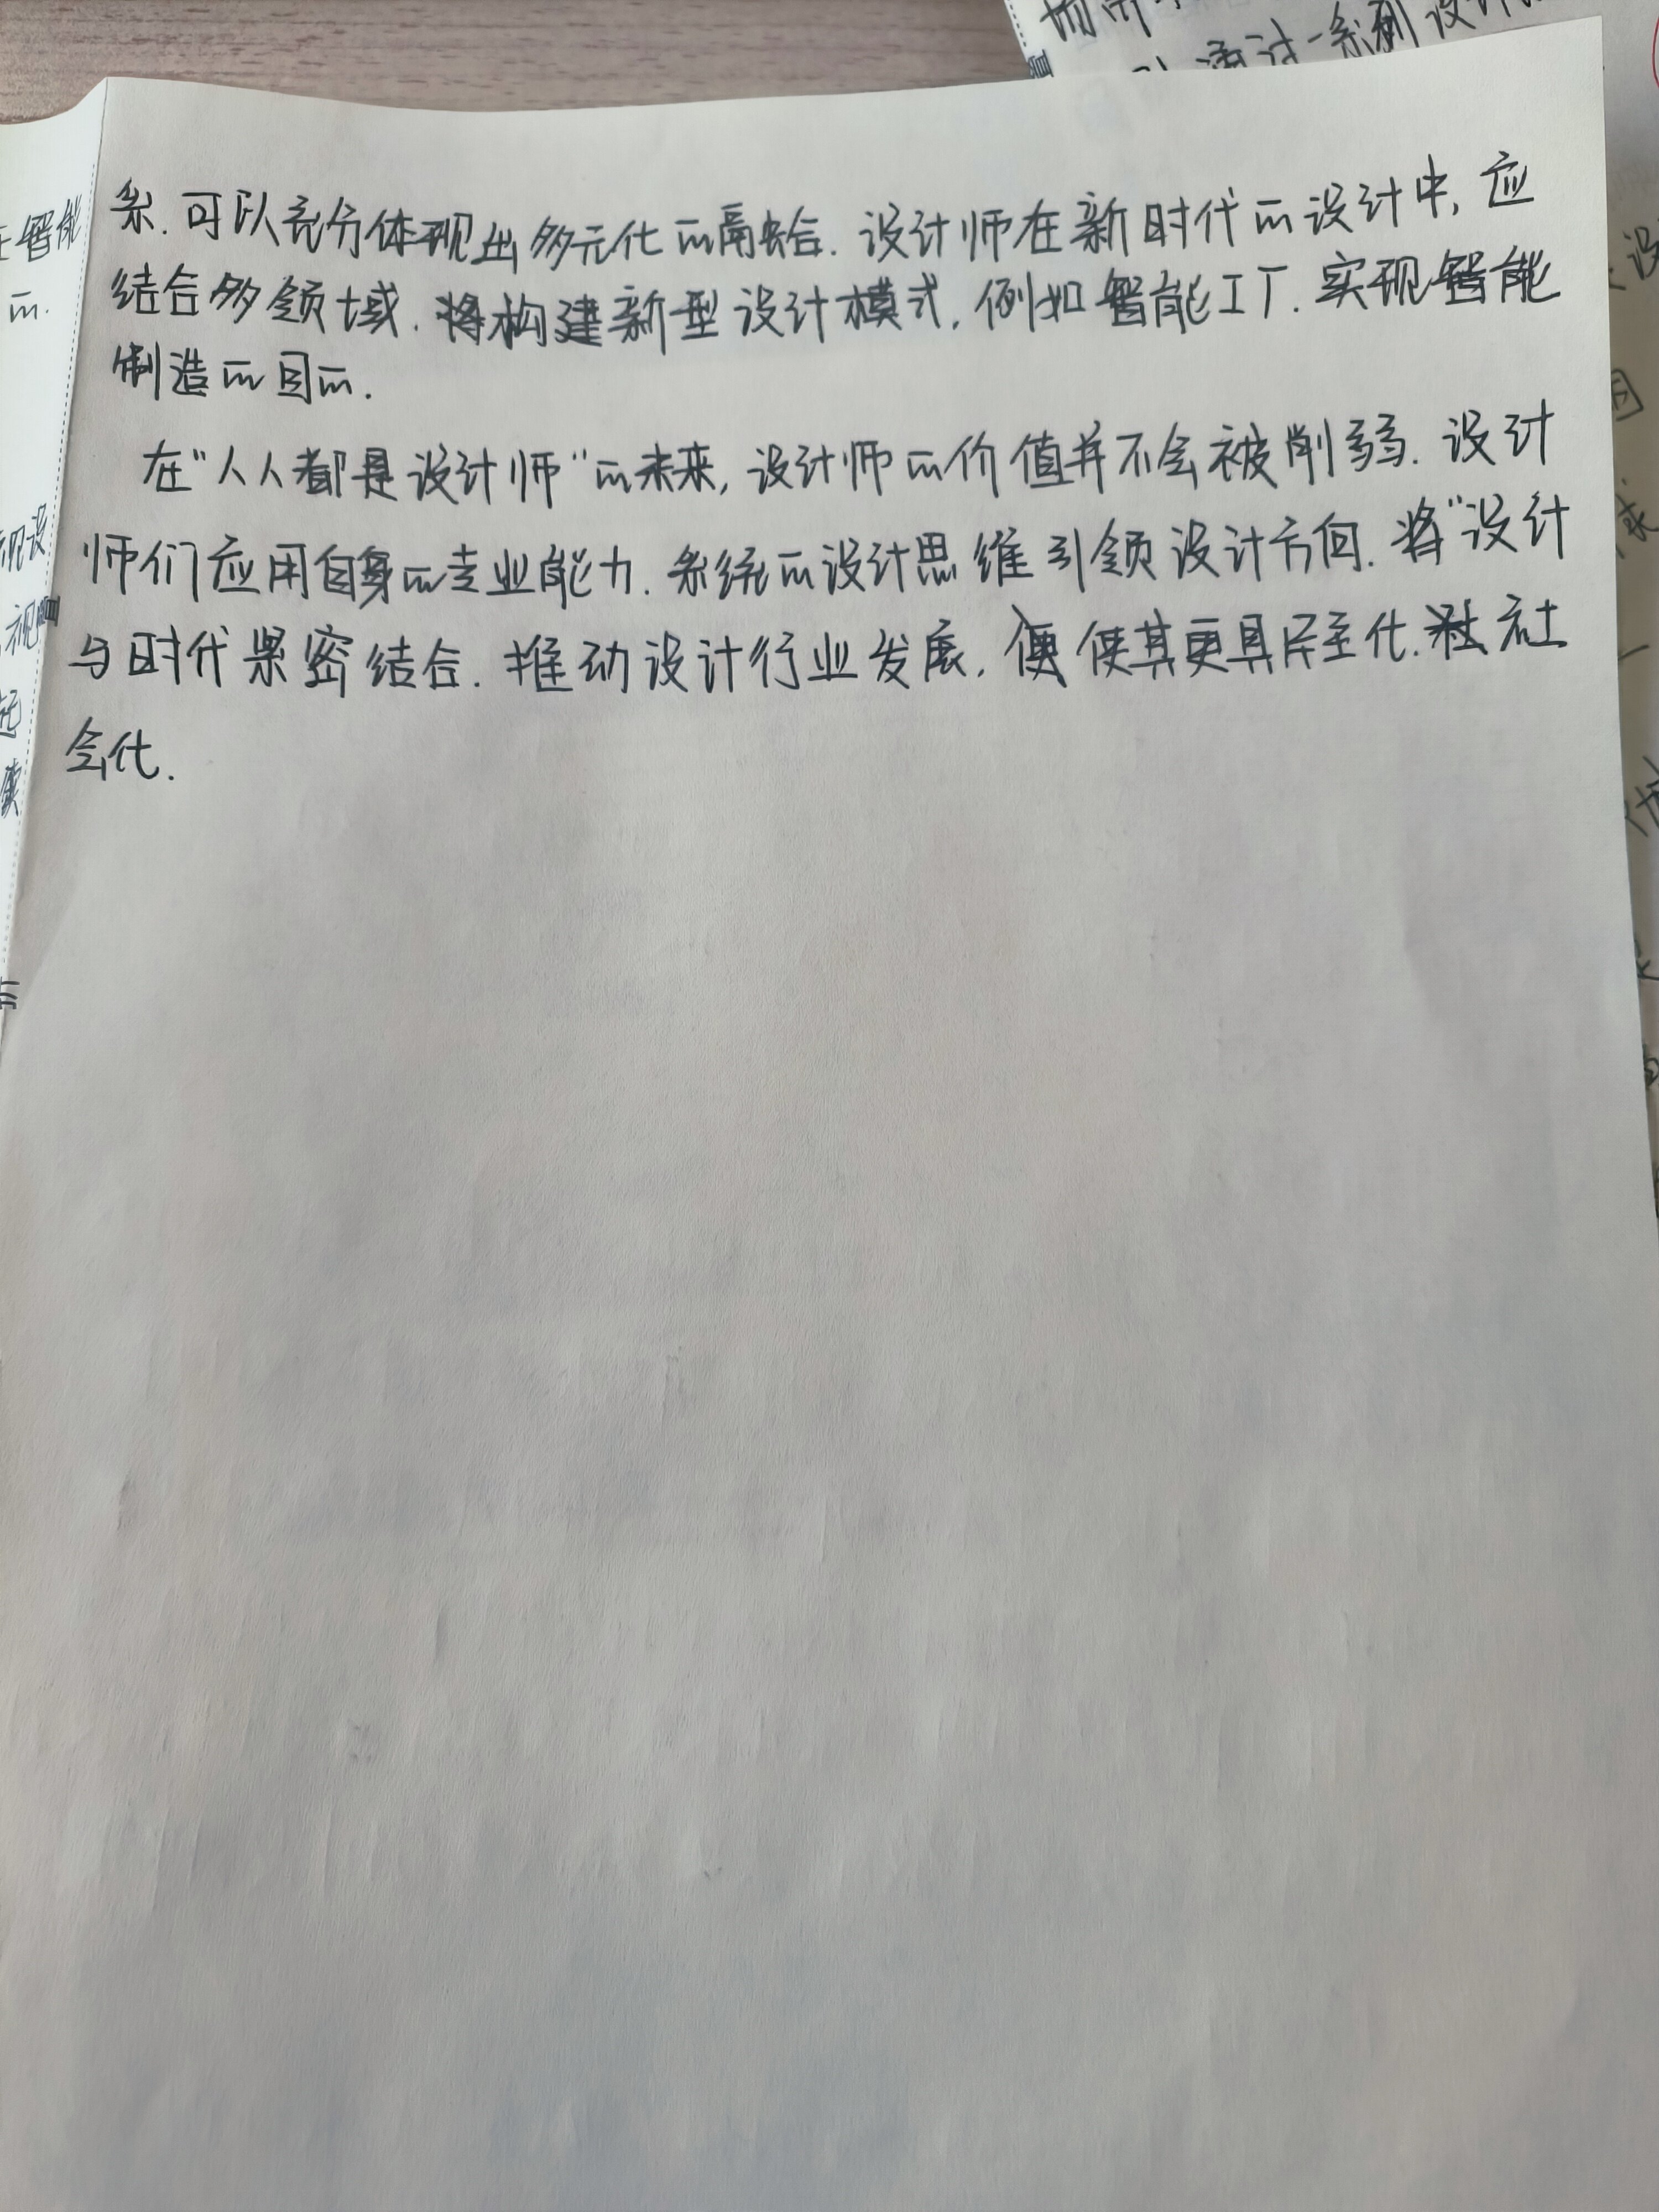 系.可以充分体现出多元化的融合.设计师在新时代的设计中,应
结合多领域.将构建新型设计模式,例如智能工厂.实现智能
制造的目的.
在"人人都是设计师"的未来,设计师的价值并不会被削弱.设计
师们应用自身的专业能力.系统的设计思维引领设计方向.将"设计
与时代紧密结合.推动设计行业发展,使其更具历史化.社
会化.
通过一系列设计
智能
的.